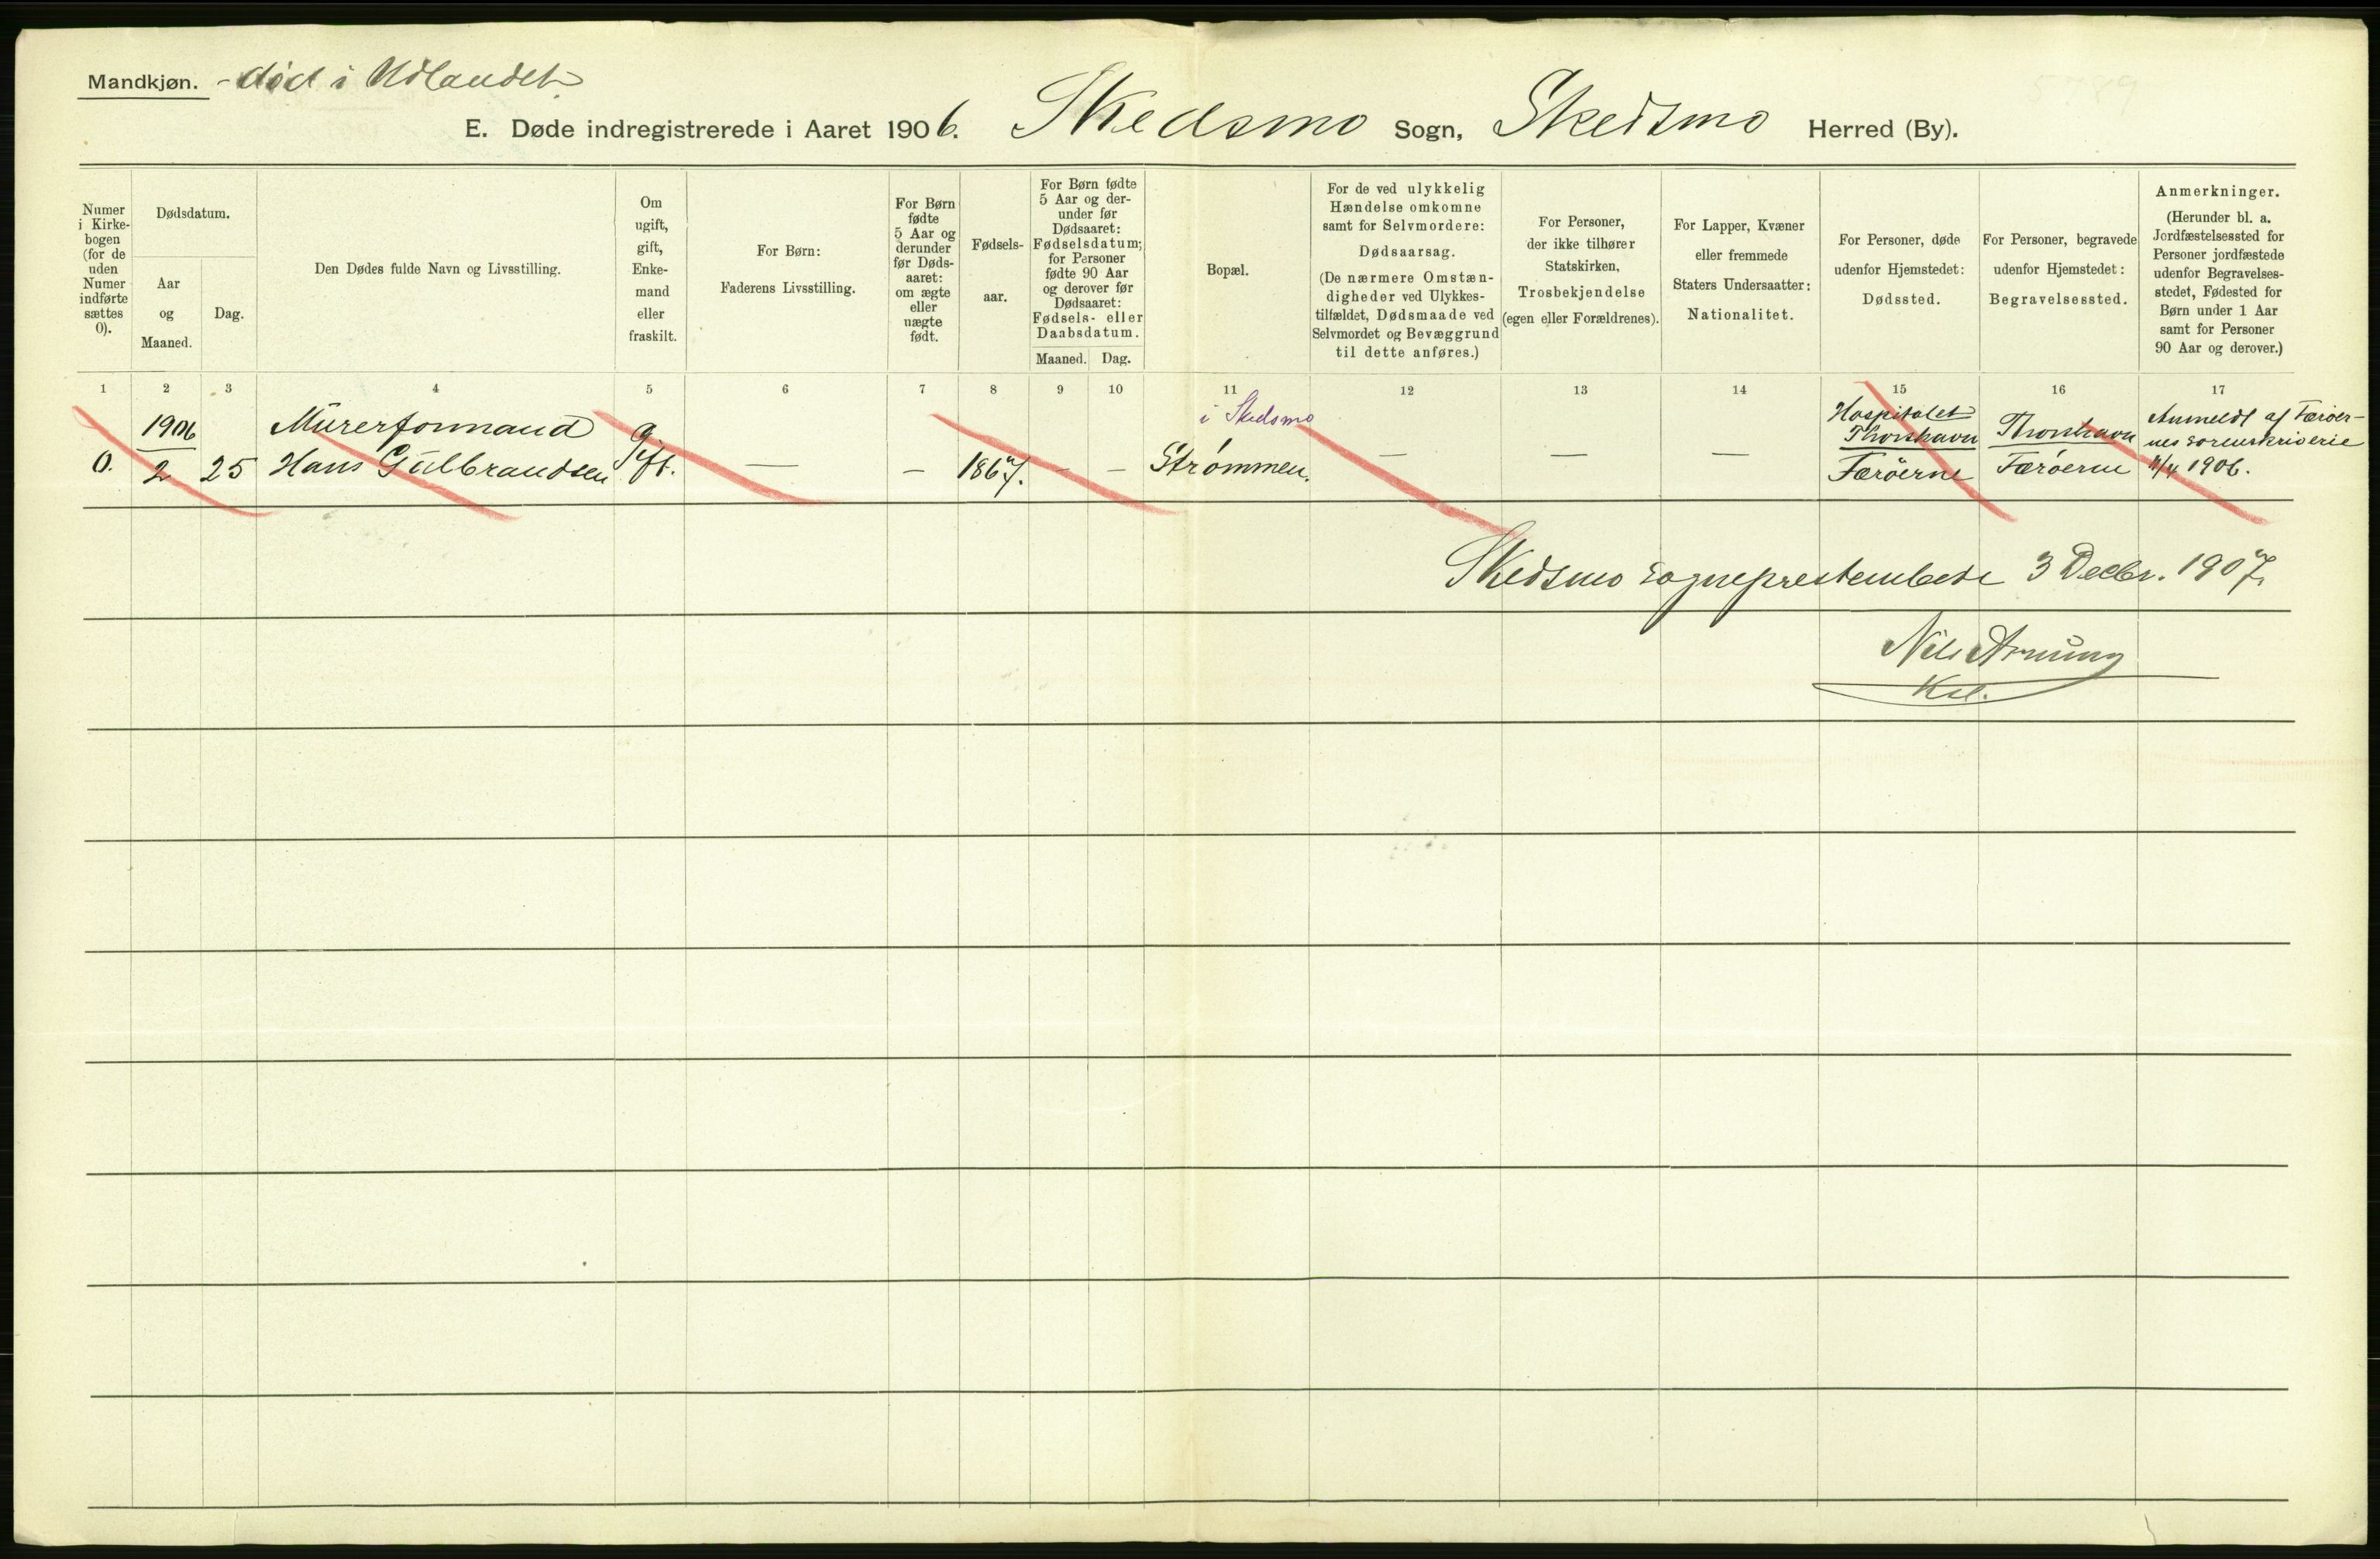 Mandkjøn. - død i Udlandet
E. Døde indregistrerede i Aaret 1906. Skedsmo Sogn, Skedsmo Herred (By).
Numer
i Kirke-
bogen
(for de
uden
Numer
indførte
sættes
0).
Dødsdatum.
Aar
og
Maaned.
Dag.
Den Dødes fulde Navn og Livsstilling.
Om
ugift,
gift,
Enke-
mand
eller
fraskilt.
For Børn:
Faderens Livsstilling.
For Børn
fødte
5 Aar og
derunder
før Døds-
aaret:
om ægte
eller
uægte
født.
Fødsels-
aar.
For Børn fødte
5 Aar og der-
under før
Dødsaaret:
Fødselsdatum;
for Personer
fødte 90 Aar
og derover før
Dødsaaret:
Fødsels- eller
Daabsdatum.
Maaned. Dag.
Bopæl.
For de ved ulykkelig
Hændelse omkomne
samt for Selvmordere:
Dødsaarsag.
(De nærmere Omstæn-
digheder ved Ulykkes-
tilfældet, Dødsmaade ved
Selvmordet og Bevæggrund
til dette anføres.)
For Personer,
der ikke tilhører
Statskirken,
Trosbekjendelse
(egen eller Forældrenes).
For Lapper, Kvæner
eller fremmede
Staters Undersaatter:
Nationalitet.
For Personer, døde
udenfor Hjemstedet:
Dødssted.
For Personer, begravede
udenfor Hjemstedet:
Begravelsessted.
Anmerkninger.
(Herunder bl. a.
Jordfæstelsessted for
Personer jordfæstede
udenfor Begravelses-
stedet, Fødested for
Børn under 1 Aar
samt for Personer
90 Aar og derover.)
1 2 3 4 5 6 7 8 9 10 11 12 13 14 15 16 17
0.
1906
2
25
Murerformand
Hans Gulbrandsen
Gift.
—
—
1867.
—
—
i Skedsmo
Strømmen.
—
—
—
Hospitalet
Thorshavn
Færøerne
Thorshavn
Færøerne
Anmeldt af Færøer-
nes Sorenskriverie
1906.
Skedsmo Sogneprestembede 3 Decbr. 1907.
Nils Arnung